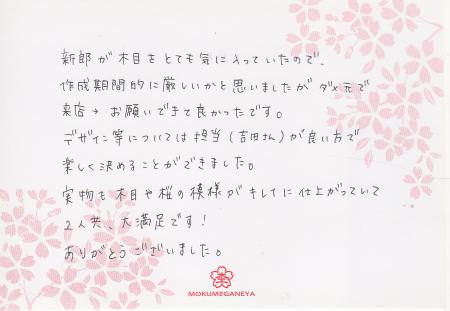 新郎が木目をとても気に入っていたので、
作成期間的に厳しいかと思いましたがダメ元で
来店→お願いできて良かったです。
デザイン等については担当(吉田さん)が良い方で
楽しく決めることができました。
実物も木目や桜の模様がキレイに仕上がっていて
2人共、大満足です!
ありがとうございました。
MOKUMEGANEYA